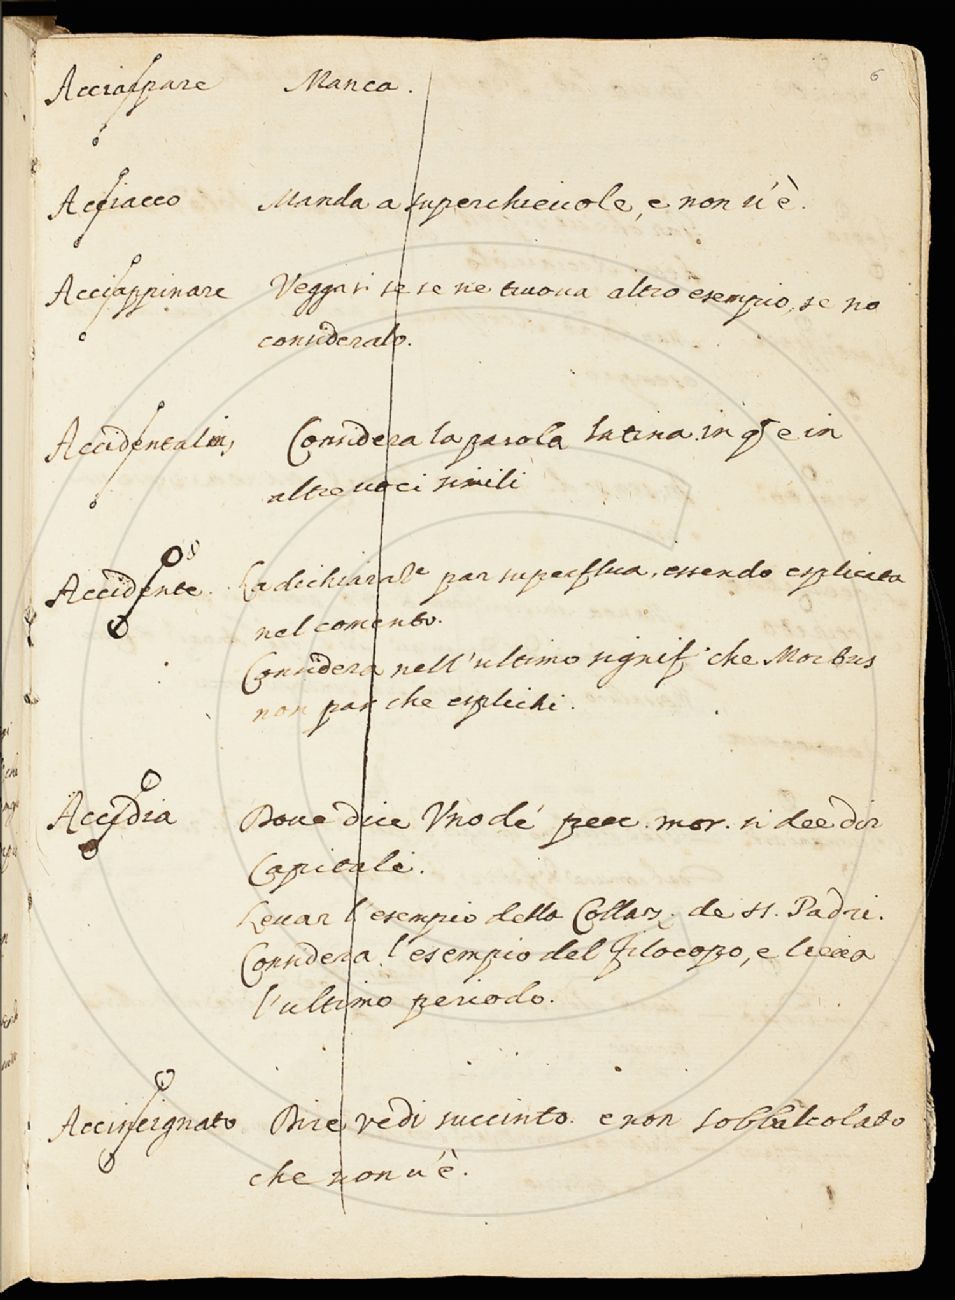 6
Acciaspare Manca.
Acciacco Manda a superchievole, e non u'è.
Acciappinare Veggasi se se ne truova altro esempio, se no
consideralo.
Accidentalm, Considera la parola latina in qs e in
altre uoci simili
Accidente. La dichiaraze par superflua, essendo esplicata
nel comento.
Considera nell'ultimo signif. che Morbus
non par che esplichi.
Accidia Doue dice Vno dé pecc. mor. si dee dir
Capitali.
Leuar l'esempio della Collaz. de SS. Padri.
Considera l'esempio del Filocopo, e lieva
l'ultimo periodo.
Accinsignato Dire vedi succinto. e non sobbalcolato
che non u'è.